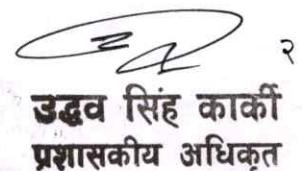 २
उद्धव सिंह कार्की
प्रशासकीय अधिकृत